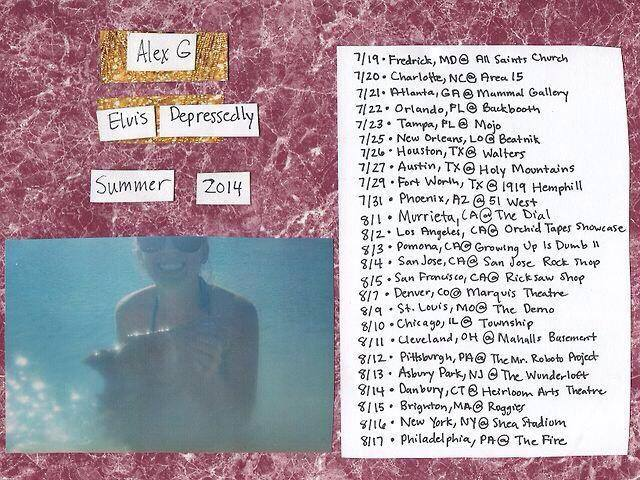 Alex G
Elvis Depressedly
Summer 2014
7/19 • Fredrick, MD @ All Saints Church
7/20 • Charlotte, NC @ Area 15
7/21 • Atlanta, GA @ Mammal Gallery
7/22 • Orlando, FL @ Backbooth
7/23 • Tampa, FL @ Mojo
7/25 • New Orleans, LO @ Beatnik
7/26 • Houston, TX @ Walters
7/27 • Austin, TX @ Holy Mountains
7/29 • Fort Worth, TX @ 1919 Hemphill
7/31 • Phoenix, AZ @ 51 West
8/1 • Murrieta, CA @ The Dial
8/2 • Los Angeles, CA @ Orchid Tapes Showcase
8/3 • Pomona, CA @ Growing Up Is Dumb II
8/4 • San Jose, CA @ San Jose Rock Shop
8/5 • San Francisco, CA @ Ricksaw Shop
8/7 • Denver, CO @ Marquis Theatre
8/9 • St. Louis, MO @ The Demo
8/10 • Chicago, IL @ Township
8/11 • Cleveland, OH @ Mahalls Basement
8/12 • Pittsburgh, PA @ The Mr. Roboto Project
8/13 • Asbury Park, NJ @ The Wunderloft
8/14 • Danbury, CT @ Heirloom Arts Theatre
8/15 • Brighton, MA @ Roggies
8/16 • New York, NY @ Shea Stadium
8/17 • Philadelphia, PA @ The Fire